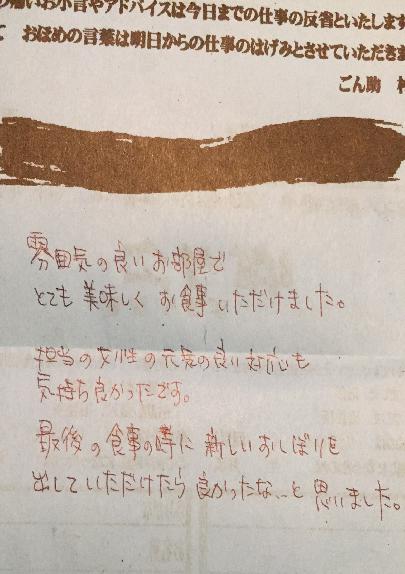 痛いお小言やアドバイスは今日までの仕事の反省といたします
て おほめの言葉は明日からの仕事のはげみとさせていただきま
ごん助
雰囲気の良いお部屋で
とても美味しくお食事いただけました。
担当の女性の元気の良い対応も
気持ち良かったです。
最後の食事の時に新しいおしぼりを
出していただけたら良かったな…と思いました。